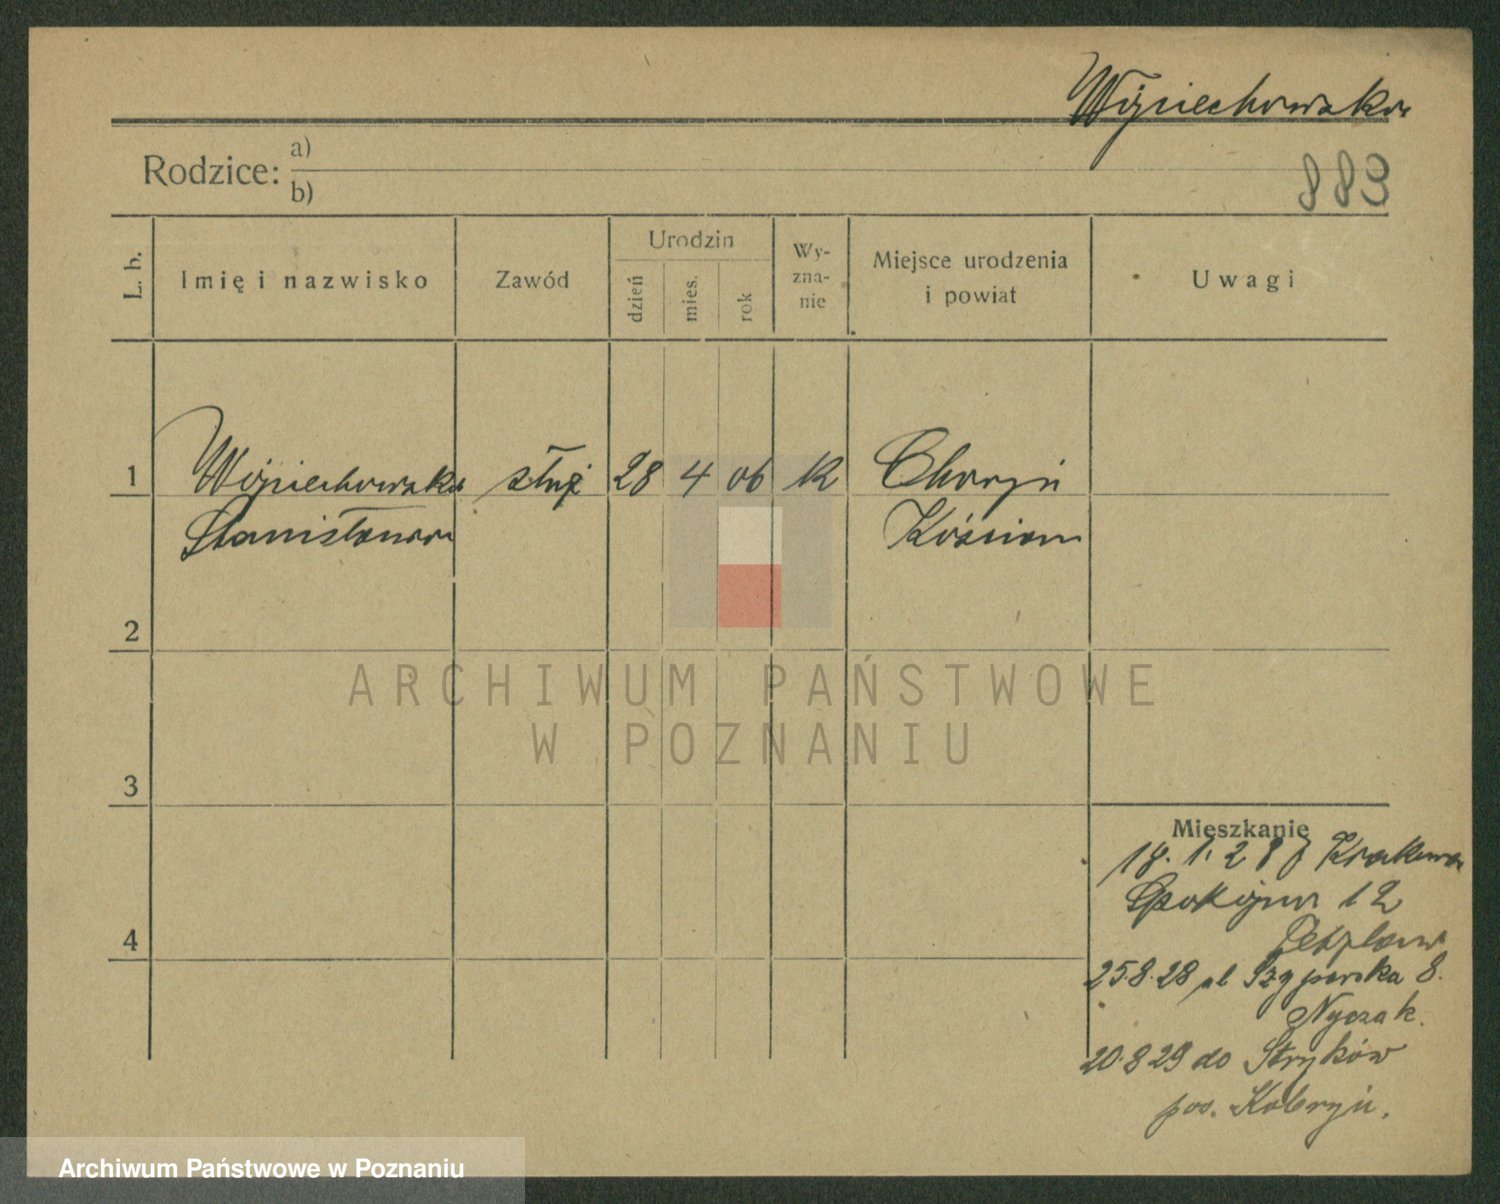 Wojciechowska
Rodzice: a)
b)
883
L. b.
Imię i nazwisko
Zawód
Urodzin
dzień
mies.
rok
Wy-
zna-
nie
Miejsce urodzenia
i powiat
Uwagi
1
Wojciechowska służ 28 4 06 K Choryń
Stanisława Kościan
2
ARCHIWUM PAŃSTWOWE
W POZNANIU
3
Mieszkanie
18.1.28 Krakowa
Spokojna 12
4
25.8.28 pl Szyperska 8.
Nyczak.
20.8 29 do Stryków
pos. Kobryń.
Archiwum Państwowe w Poznaniu